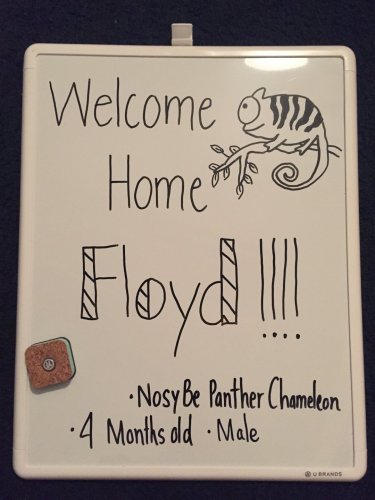 Welcome
Home
Floyd !!!!
• Nosy Be Panther Chameleon
• 4 Months old • Male
U BRANDS